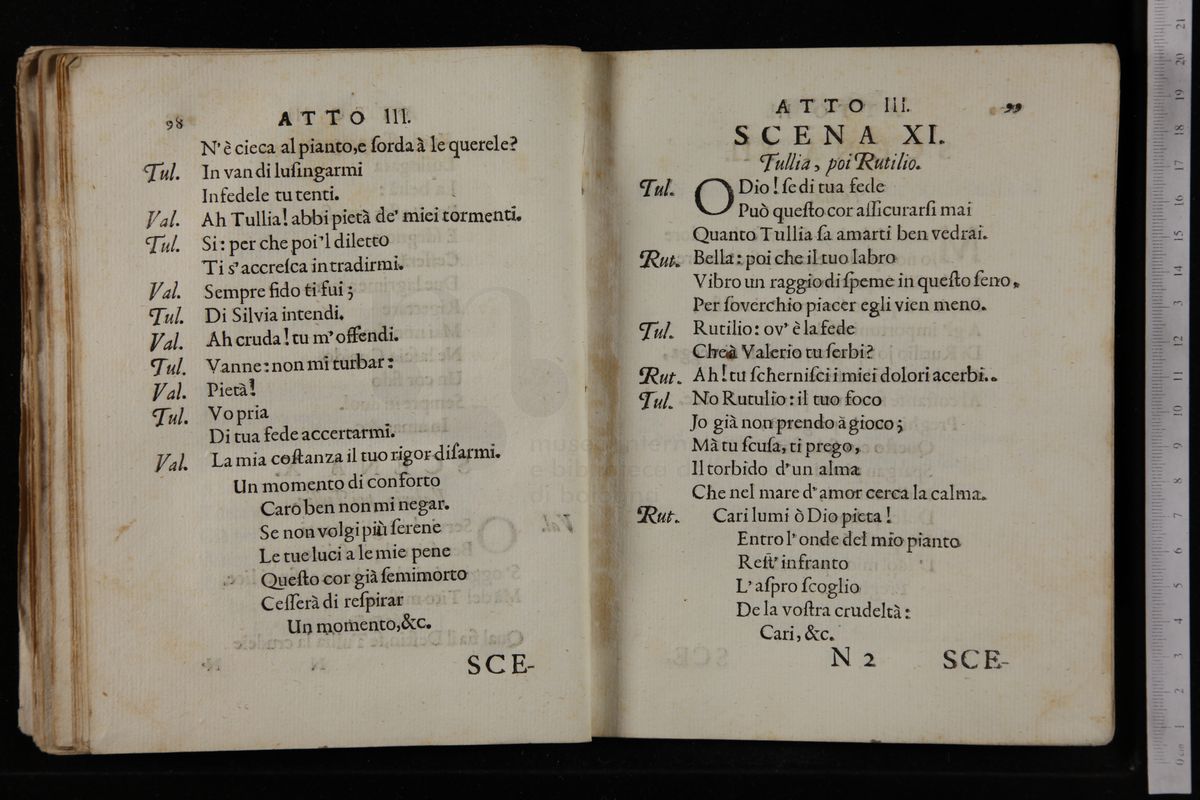 98 ATTO III.
N' è cieca al pianto, e ſorda à le querele?
Tul. In van di luſingarmi
Infedele tu tenti.
Val. Ah Tullia! abbi pietà de' miei tormenti.
Tul. Si: per che poi 'l diletto
Ti s' accreſca in tradirmi.
Val. Sempre fido ti fui;
Tul. Di Silvia intendi.
Val. Ah cruda! tu m' offendi.
Tul. Vanne: non mi turbar:
Val. Pietà!
Tul. Vo pria
Di tua fede accertarmi.
Val. La mia coſtanza il tuo rigor diſarmi.
Un momento di conforto
Caro ben non mi negar.
Se non volgi più ſerene
Le tue luci a le mie pene
Queſto cor già ſemimorto
Ceſſerà di reſpirar
Un momento, &c.
SCE-
ATTO III. 99
SCENA XI.
Tullia, poi Rutilio.
Tul. O Dio! ſe di tua fede
Può queſto cor aſſicurarſi mai
Quanto Tullia ſa amarti ben vedrai.
Rut. Bella: poi che il tuo labro
Vibro un raggio di ſpeme in queſto ſeno,
Per ſoverchio piacer egli vien meno.
Tul. Rutilio: ov' è la fede
Che à Valerio tu ſerbi?
Rut. Ah! tu ſcherniſci i miei dolori acerbi..
Tul. No Rutulio: il tuo foco
Jo già non prendo à gioco;
Mà tu ſcuſa, ti prego,
Il torbido d' un alma
Che nel mare d' amor cerca la calma.
Rut. Cari lumi ò Dio pieta!
Entro l' onde del mio pianto
Reſt' infranto
L' aſpro ſcoglio
De la voſtra crudeltà:
Cari, &c.
N 2 SCE-